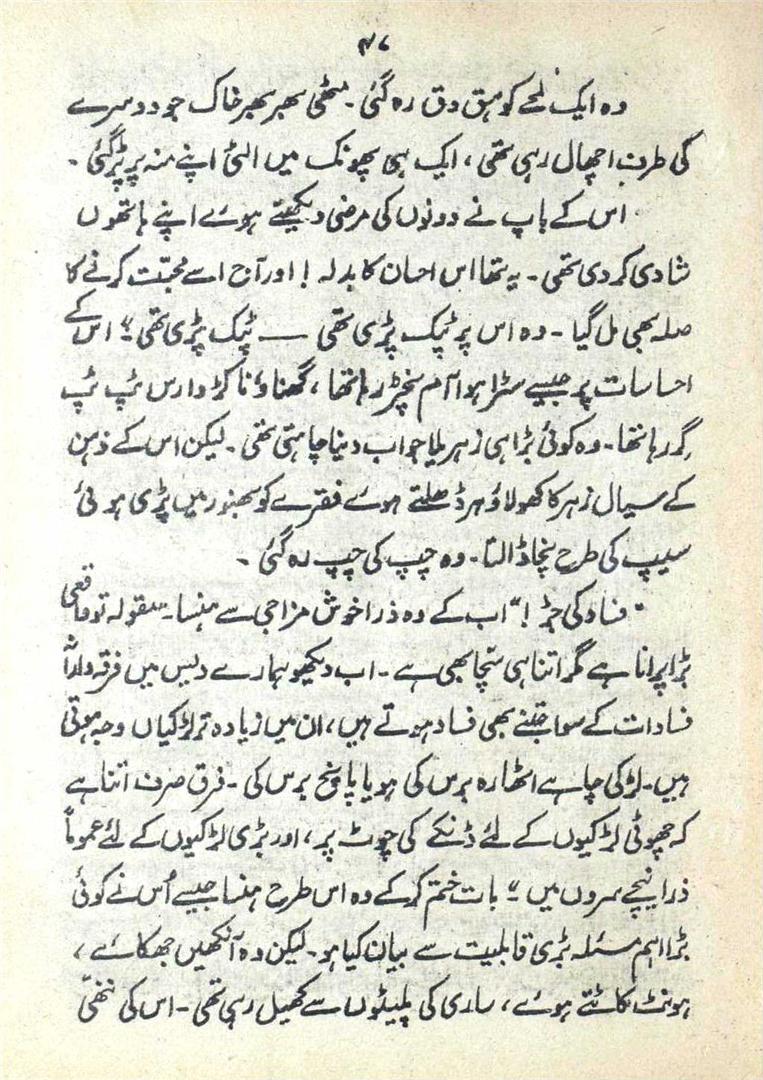 ۴۷
وہ ایک لمحے کو ہق دق رہ گئی۔ مٹھی بھر بھر خاک جو دوسرے
کی طرف اچھال رہی تھی، ایک ہی پھونک میں الٹی اپنے منہ پر پڑ گئی۔
اس کے باپ نے دونوں کی مرضی دیکھتے ہوئے اپنے ہاتھوں
شادی کر دی تھی۔ یہ تھا اس احسان کا بدلہ! اور آج اسے محبت کرنے کا
صلہ بھی مل گیا۔ وہ اس پر ٹپک پڑی تھی — ٹپک پڑی تھی؟ اس کے
احساسات پر جیسے سڑا ہوا آم نچڑ رہا تھا، گھناؤنا کڑوا رس ٹپ ٹپ
گر رہا تھا۔ وہ کوئی بڑا ہی زہریلا جواب دینا چاہتی تھی۔ لیکن اس کے ذہن
کے سیال زہر کا کھولاؤ ہر ڈھلتے ہوئے فقرے کو بھنور میں پڑی ہوئی
سیپ کی طرح نچا ڈالتا۔ وہ چپ کی چپ رہ گئی۔
"فساد کی جڑ!" اب کے وہ ذرا خوش مزاجی سے ہنسا۔ "مقولہ تو واقعی
بڑا پرانا ہے مگر اتنا ہی سچا بھی ہے۔ اب دیکھو ہمارے دیس میں فرقہ وارانہ
فسادات کے سوا جتنے بھی فساد ہوتے ہیں، ان میں زیادہ تر لڑکیاں وجہ ہوتی
ہیں۔ لڑکی چاہے اٹھارہ برس کی ہو یا پانچ برس کی۔ فرق صرف اتنا ہے
کہ چھوٹی لڑکیوں کے لئے ڈنکے کی چوٹ پر، اور بڑی لڑکیوں کے لئے عموماً
ذرا نیچے سروں میں۔" بات ختم کر کے وہ اس طرح ہنسا جیسے اُس نے کوئی
بڑا اہم مسئلہ بڑی قابلیت سے بیان کیا ہو۔ لیکن وہ آنکھیں جھکائے،
ہونٹ کاٹتے ہوئے، ساری کی پلیٹوں سے کھیل رہی تھی۔ اس کی ننھی